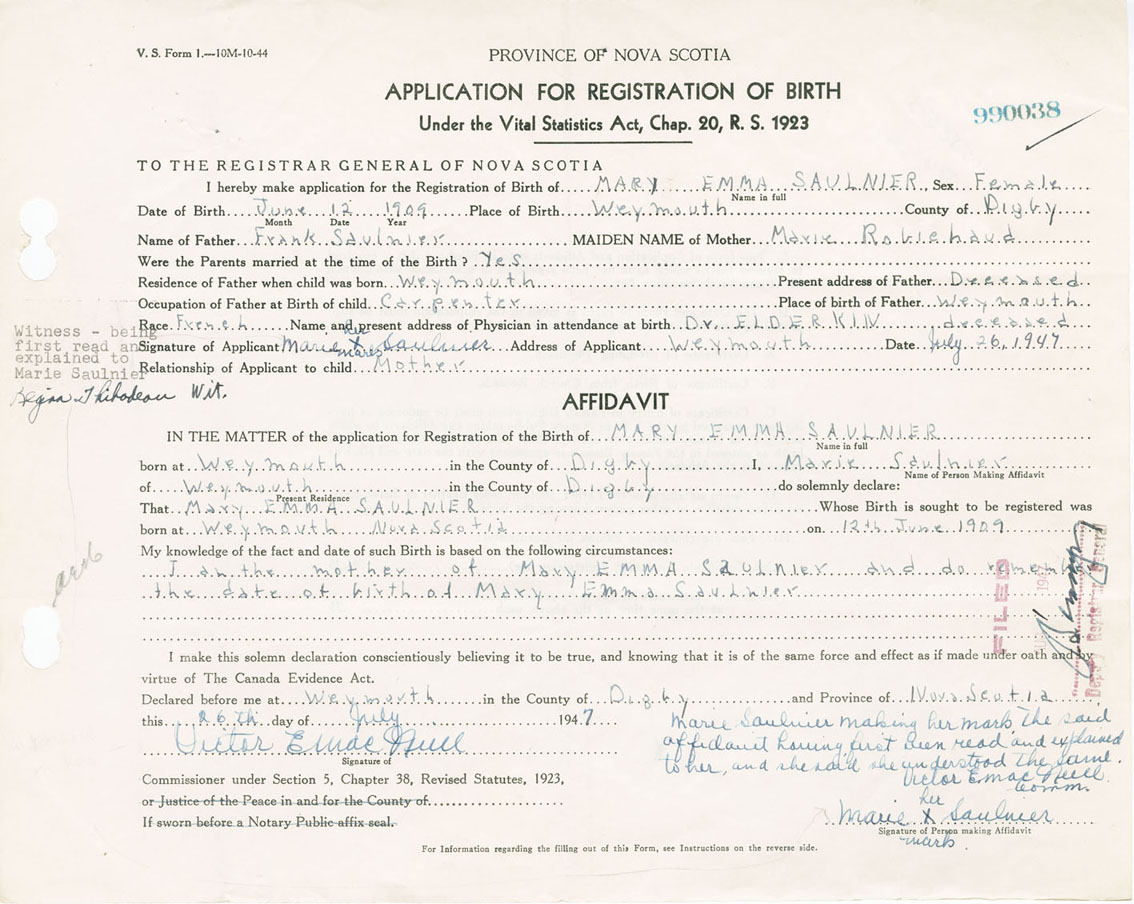 V. S. Form 1.—10M-10-44
PROVINCE OF NOVA SCOTIA
APPLICATION FOR REGISTRATION OF BIRTH
Under the Vital Statistics Act, Chap. 20, R. S. 1923
990038
TO THE REGISTRAR GENERAL OF NOVA SCOTIA
I hereby make application for the Registration of Birth of MARY EMMA SAULNIER, Sex Female
Name in full
Date of Birth June 12 1909 Place of Birth Weymouth County of Digby
Month Date Year
Name of Father Frank Saulnier MAIDEN NAME of Mother Marie Robichaud
Were the Parents married at the time of the Birth? Yes
Residence of Father when child was born Weymouth Present address of Father Deceased
Occupation of Father at Birth of child Carpenter Place of birth of Father Weymouth
Race French Name and present address of Physician in attendance at birth Dr. ELDERKIN deceased
Signature of Applicant Marie her X marks Saulnier Address of Applicant Weymouth Date July 26, 1947
Relationship of Applicant to child Mother
Witness - being
first read and
explained to
Marie Saulnier
Regina Thibodeau Wit.
AFFIDAVIT
IN THE MATTER of the application for Registration of the Birth of MARY EMMA SAULNIER
Name in full
born at Weymouth in the County of Digby I, Marie Saulnier
Name of Person Making Affidavit
of Weymouth in the County of Digby do solemnly declare:
Present Residence
That Mary EMMA SAULNIER Whose Birth is sought to be registered was
born at Weymouth Nova Scotia on 12th June 1909
My knowledge of the fact and date of such Birth is based on the following circumstances:
I am the mother of Mary EMMA SAULNIER and do remember
the date of birth of Mary Emma Saulnier
FILED
Deputy Registrar General
I make this solemn declaration conscientiously believing it to be true, and knowing that it is of the same force and effect as if made under oath and by
virtue of The Canada Evidence Act.
Declared before me at Weymouth in the County of Digby and Province of Nova Scotia
this 26th day of July 1947
Victor E MacNeill
Signature of
Commissioner under Section 5, Chapter 38, Revised Statutes, 1923,
or Justice of the Peace in and for the County of
If sworn before a Notary Public affix seal.
Marie Saulnier making her mark, the said
affidavit having first been read and explained
to her, and she said she understood the same.
Victor E MacNeill
Comm.
her
Marie X Saulnier
Signature of Person making Affidavit
mark
For Information regarding the filling out of this Form, see Instructions on the reverse side.